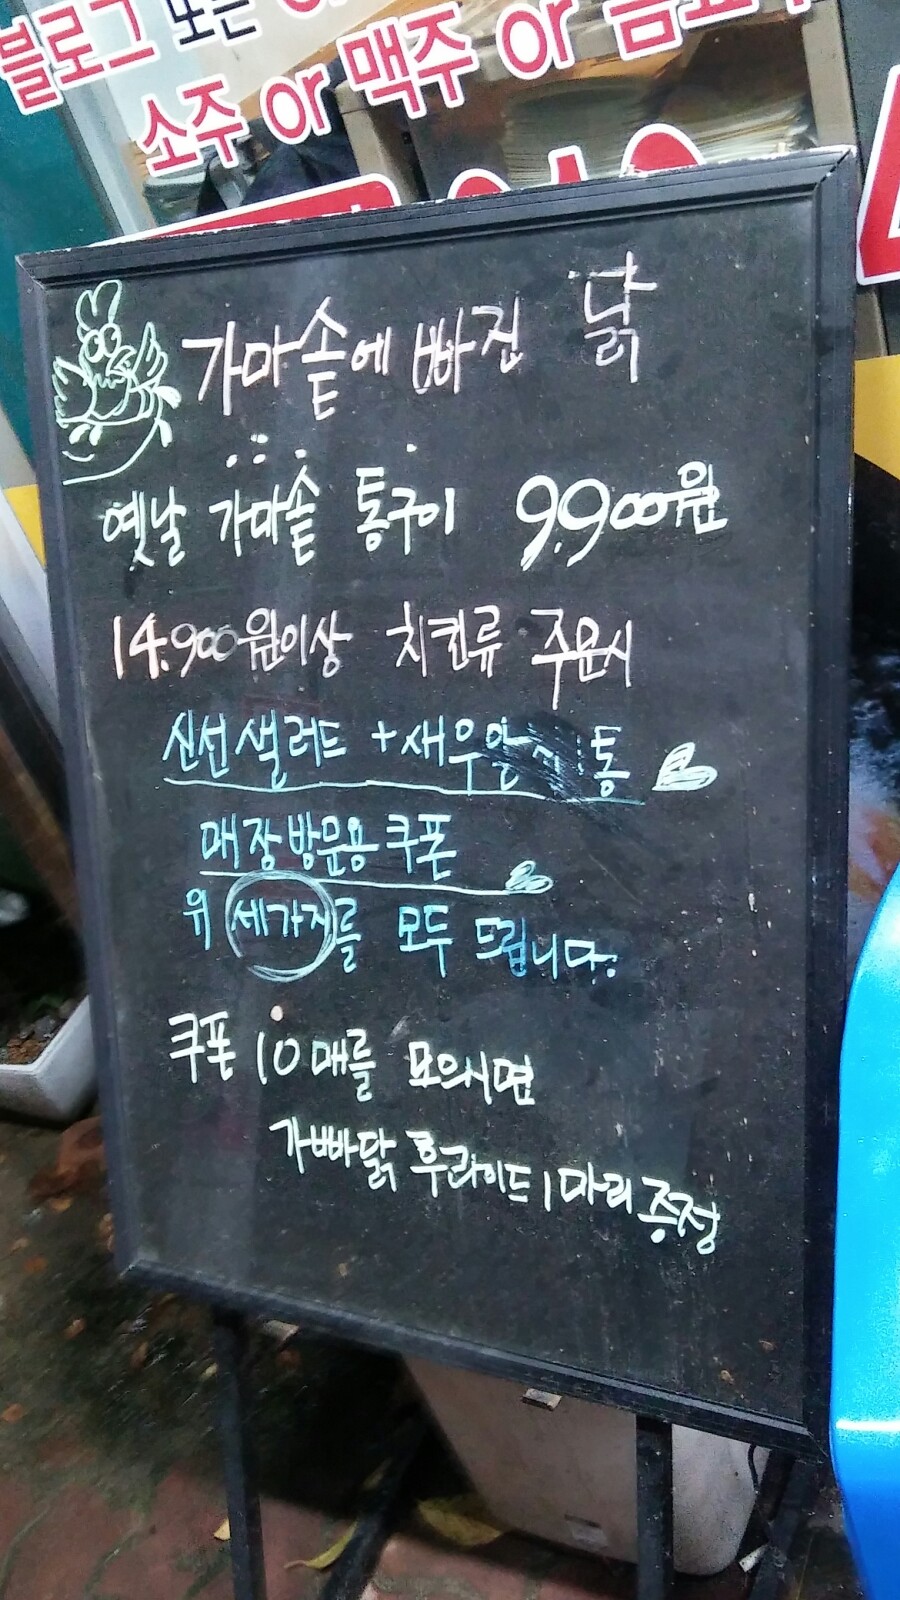 블로그 또는
소주 or 맥주 or 음료수
가마솥에 빠진 닭
옛날 가마솥 통구이 9.900원
14.900원이상 치킨류 주문시
신선샐러드 + 새우알 통
매장방문용 쿠폰
위 세가지를 모두 드립니다.
쿠폰 10매를 모으시면
가빠닭 후라이드 1마리 증정